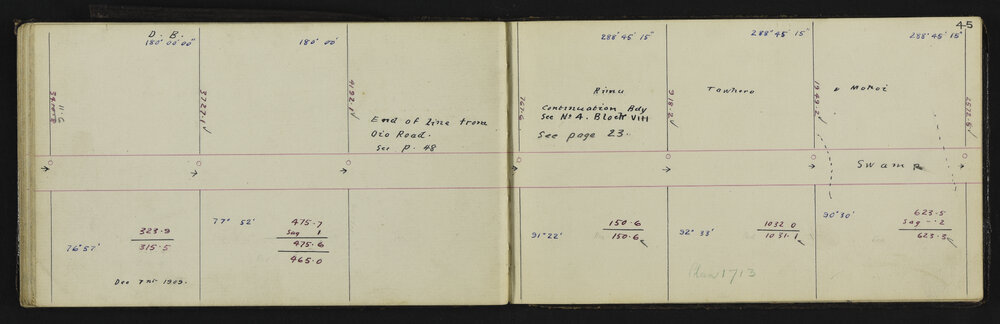 D. B.
180° 00' 00"
180° 00'
3727.1
4192.1
End of line from
Oio Road.
See p. 48
77° 52'
323.9
315.5
76° 57'
475.7
Sag 1
475.6
465.0
Dec 7th 1909.
45
288° 45' 15"
288° 45' 15"
288° 45' 15"
Rimu
Tawhero
Mokoi
Continuation Bdy
See No 4. Block VIII
See page 23.
767.6
918.2
1949.2
2572.5
Swamp
91° 22'
150.6
150.6
92° 33'
1032.0
1031.1
90° 30'
623.5
Sag .2
623.3
Plan 1713